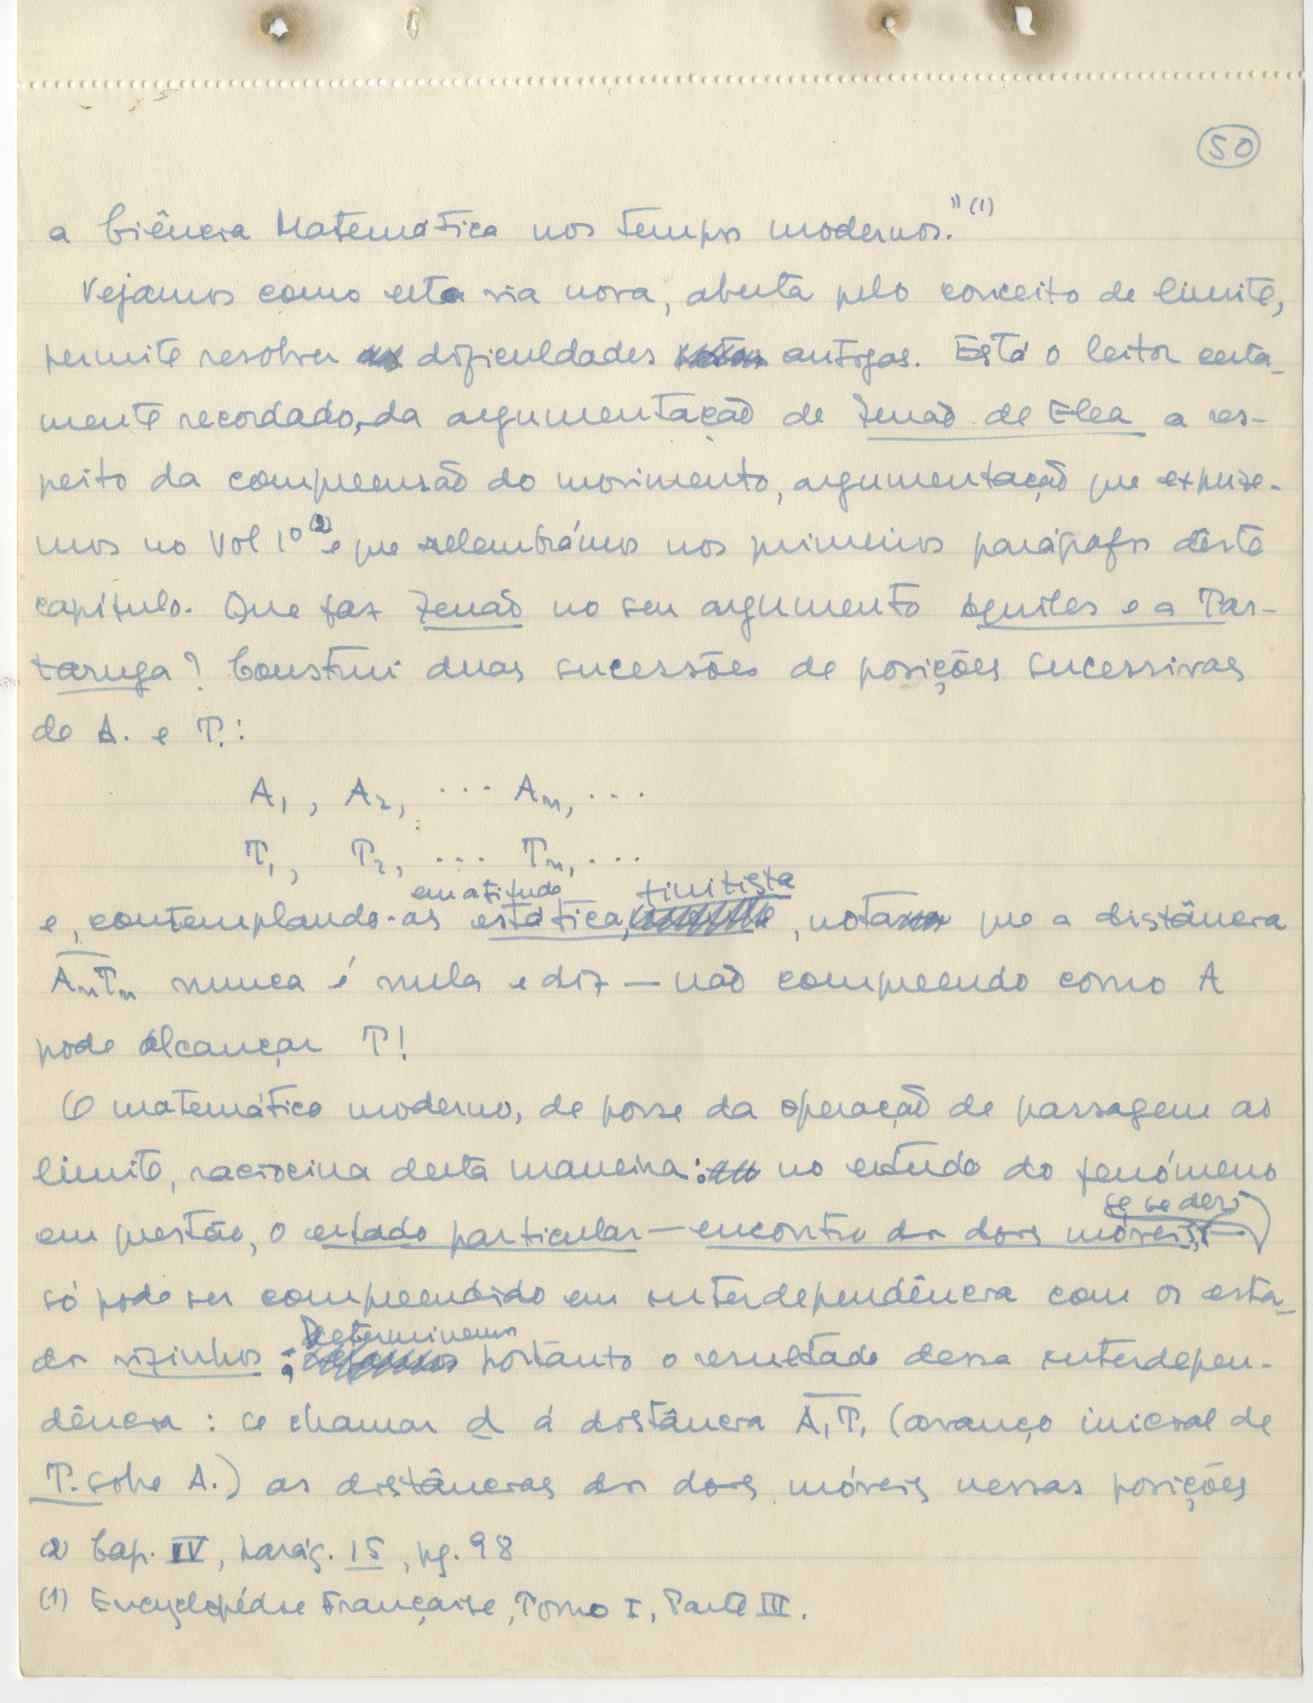 50
a Ciência Matemática nos tempos modernos." (1)
Vejamos como esta via nova, aberta pelo conceito de limite,
permite resolver dificuldades antigas. Está o leitor certa-
mente recordado, da argumentação de Zenão de Elea a res-
peito da compreensão do movimento, argumentação que expuze-
mos no Vol 1º (2) e que relembrámos nos primeiros parágrafos dêste
capítulo. Que faz Zenão no seu argumento Aquiles e a Tar-
taruga? Constrói duas sucessões de posições sucessivas
de A. e T.:
A₁, A₂, ... Aₙ, ...
T₁, T₂, ... Tₙ, ...
em atitude finitista
e, contemplando-as estática, , nota que a distância
AₙTₙ nunca é nula e diz — não compreendo como A
pode alcançar T!
O matemático moderno, de posse da operação de passagem ao
limite, raciocina desta maneira: no estudo do fenómeno
se se der,
em questão, o estado particular — encontro dos dois móveis,
só pode ser compreendido em interdependência com os esta-
Determinemos
dos vizinhos; portanto o resultado dessa interdepen-
dência: se chamar d á distância A₁T₁ (avanço inicial de
T. sobre A.) as distâncias dos dois móveis nessas posições
(2) Cap. IV, parág. 15, pg. 98
(1) Encyclopédie Française, Tomo I, Parte III.